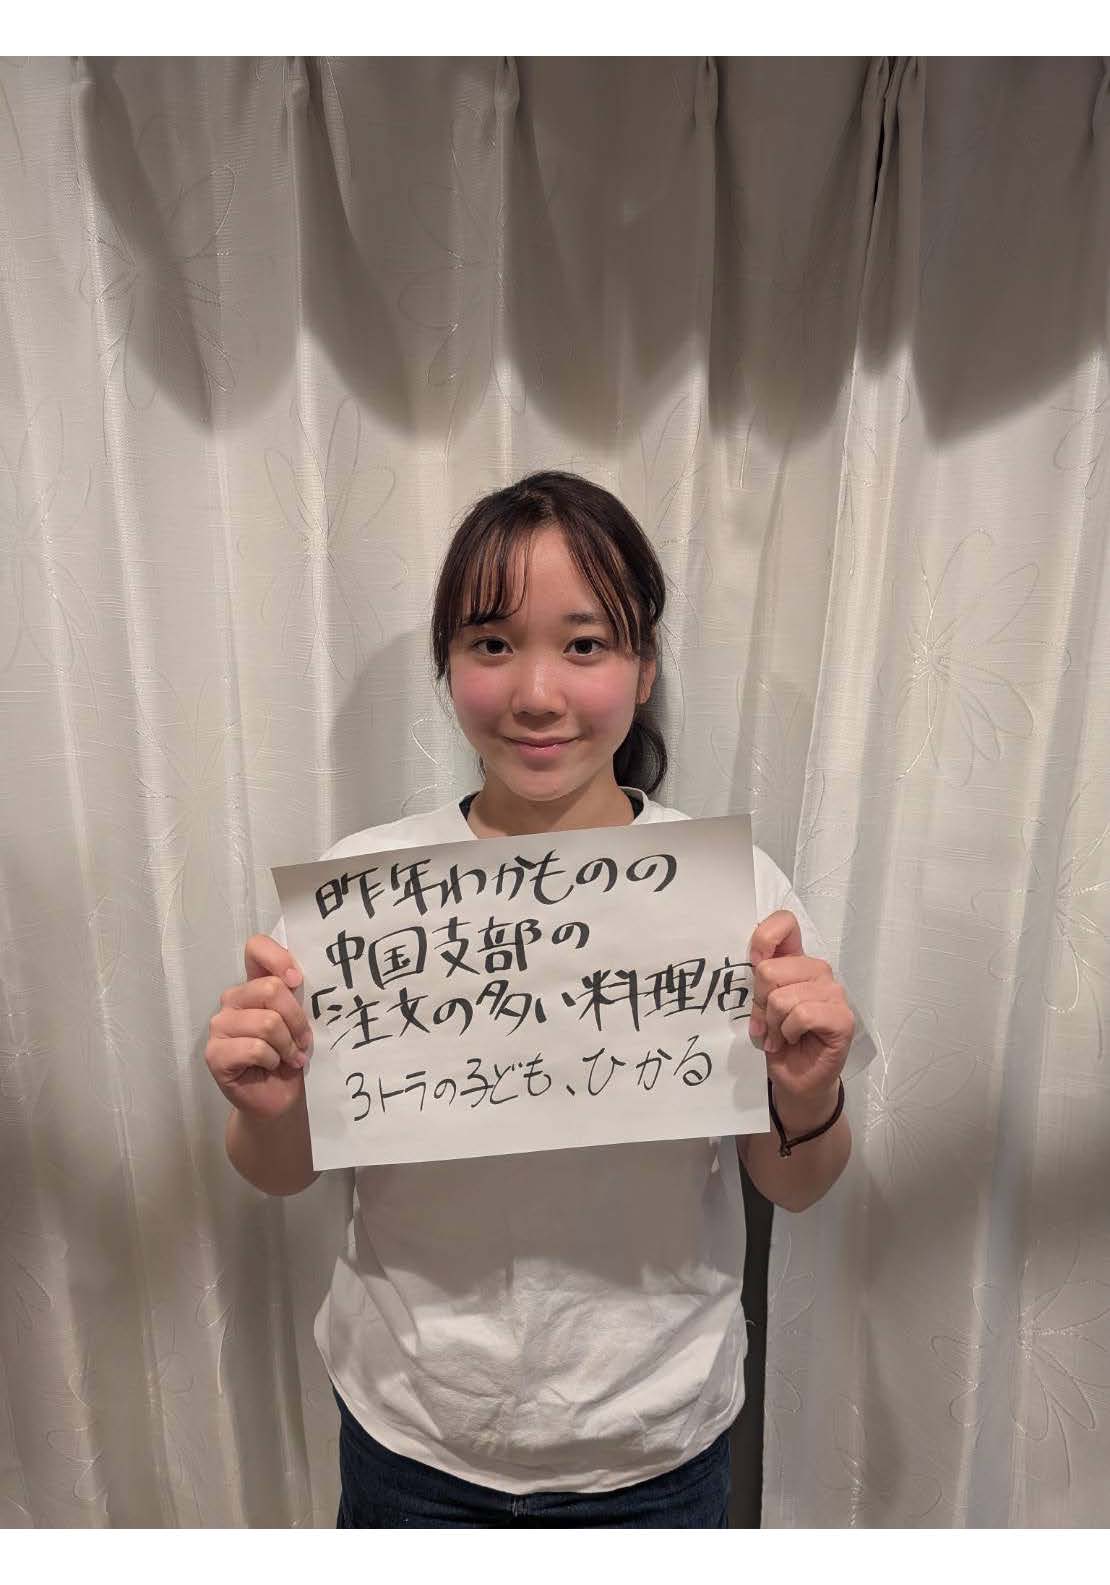 昨年わかものの
中国支部の
「注文の多い料理店」
3トラの子ども、ひかる